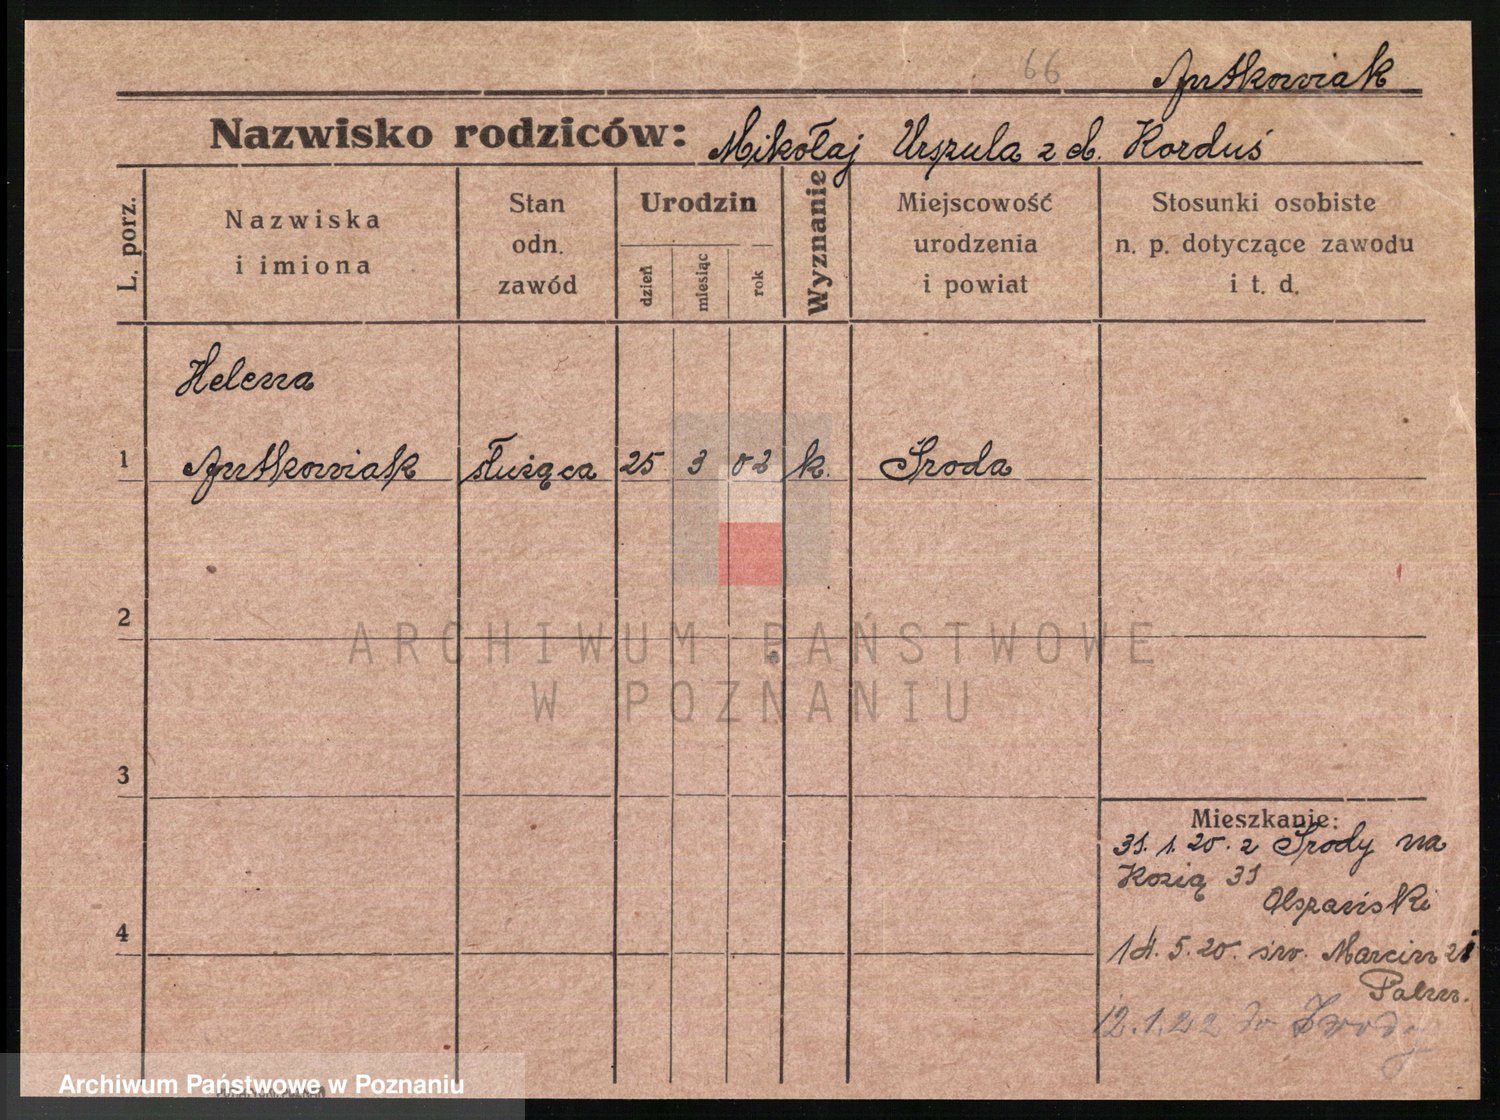 66
Jutkowiak
Nazwisko rodziców: Mikołaj Urszula z d. Korduś
L. porz.
Nazwiska
i imiona
Stan
odn.
zawód
Urodzin
dzień
miesiąc
rok
Wyznanie
Miejscowość
urodzenia
i powiat
Stosunki osobiste
n. p. dotyczące zawodu
i t. d.
Helena
1 Jutkowiak służąca 25 3 02 k. Środa
2
ARCHIWUM PAŃSTWOWE
W POZNANIU
3
Mieszkanie:
31. 1. 20. z Środy na
Kozią 31
4
14. 5. 20. św. Marcin
12.1.22 do Środy
Archiwum Państwowe w Poznaniu